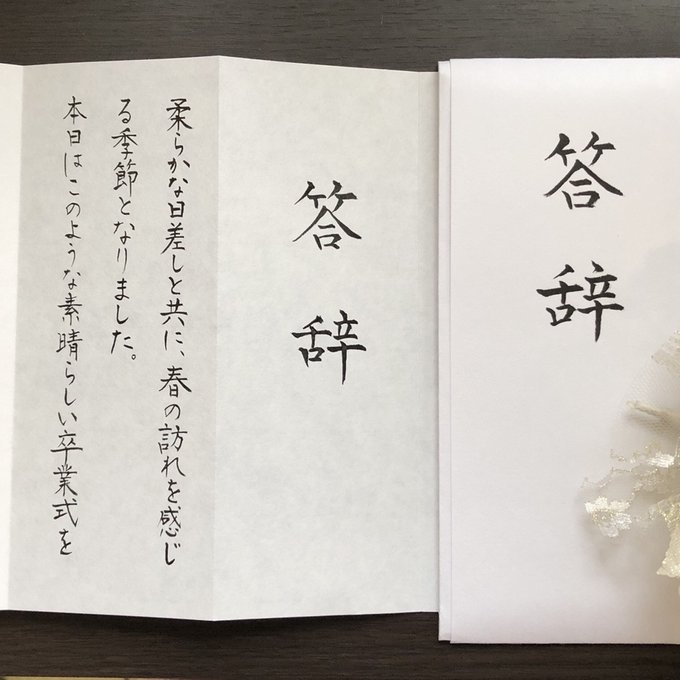 答辞
答辞
柔らかな日差しと共に、春の訪れを感じ
る季節となりました。
本日はこのような素晴らしい卒業式を